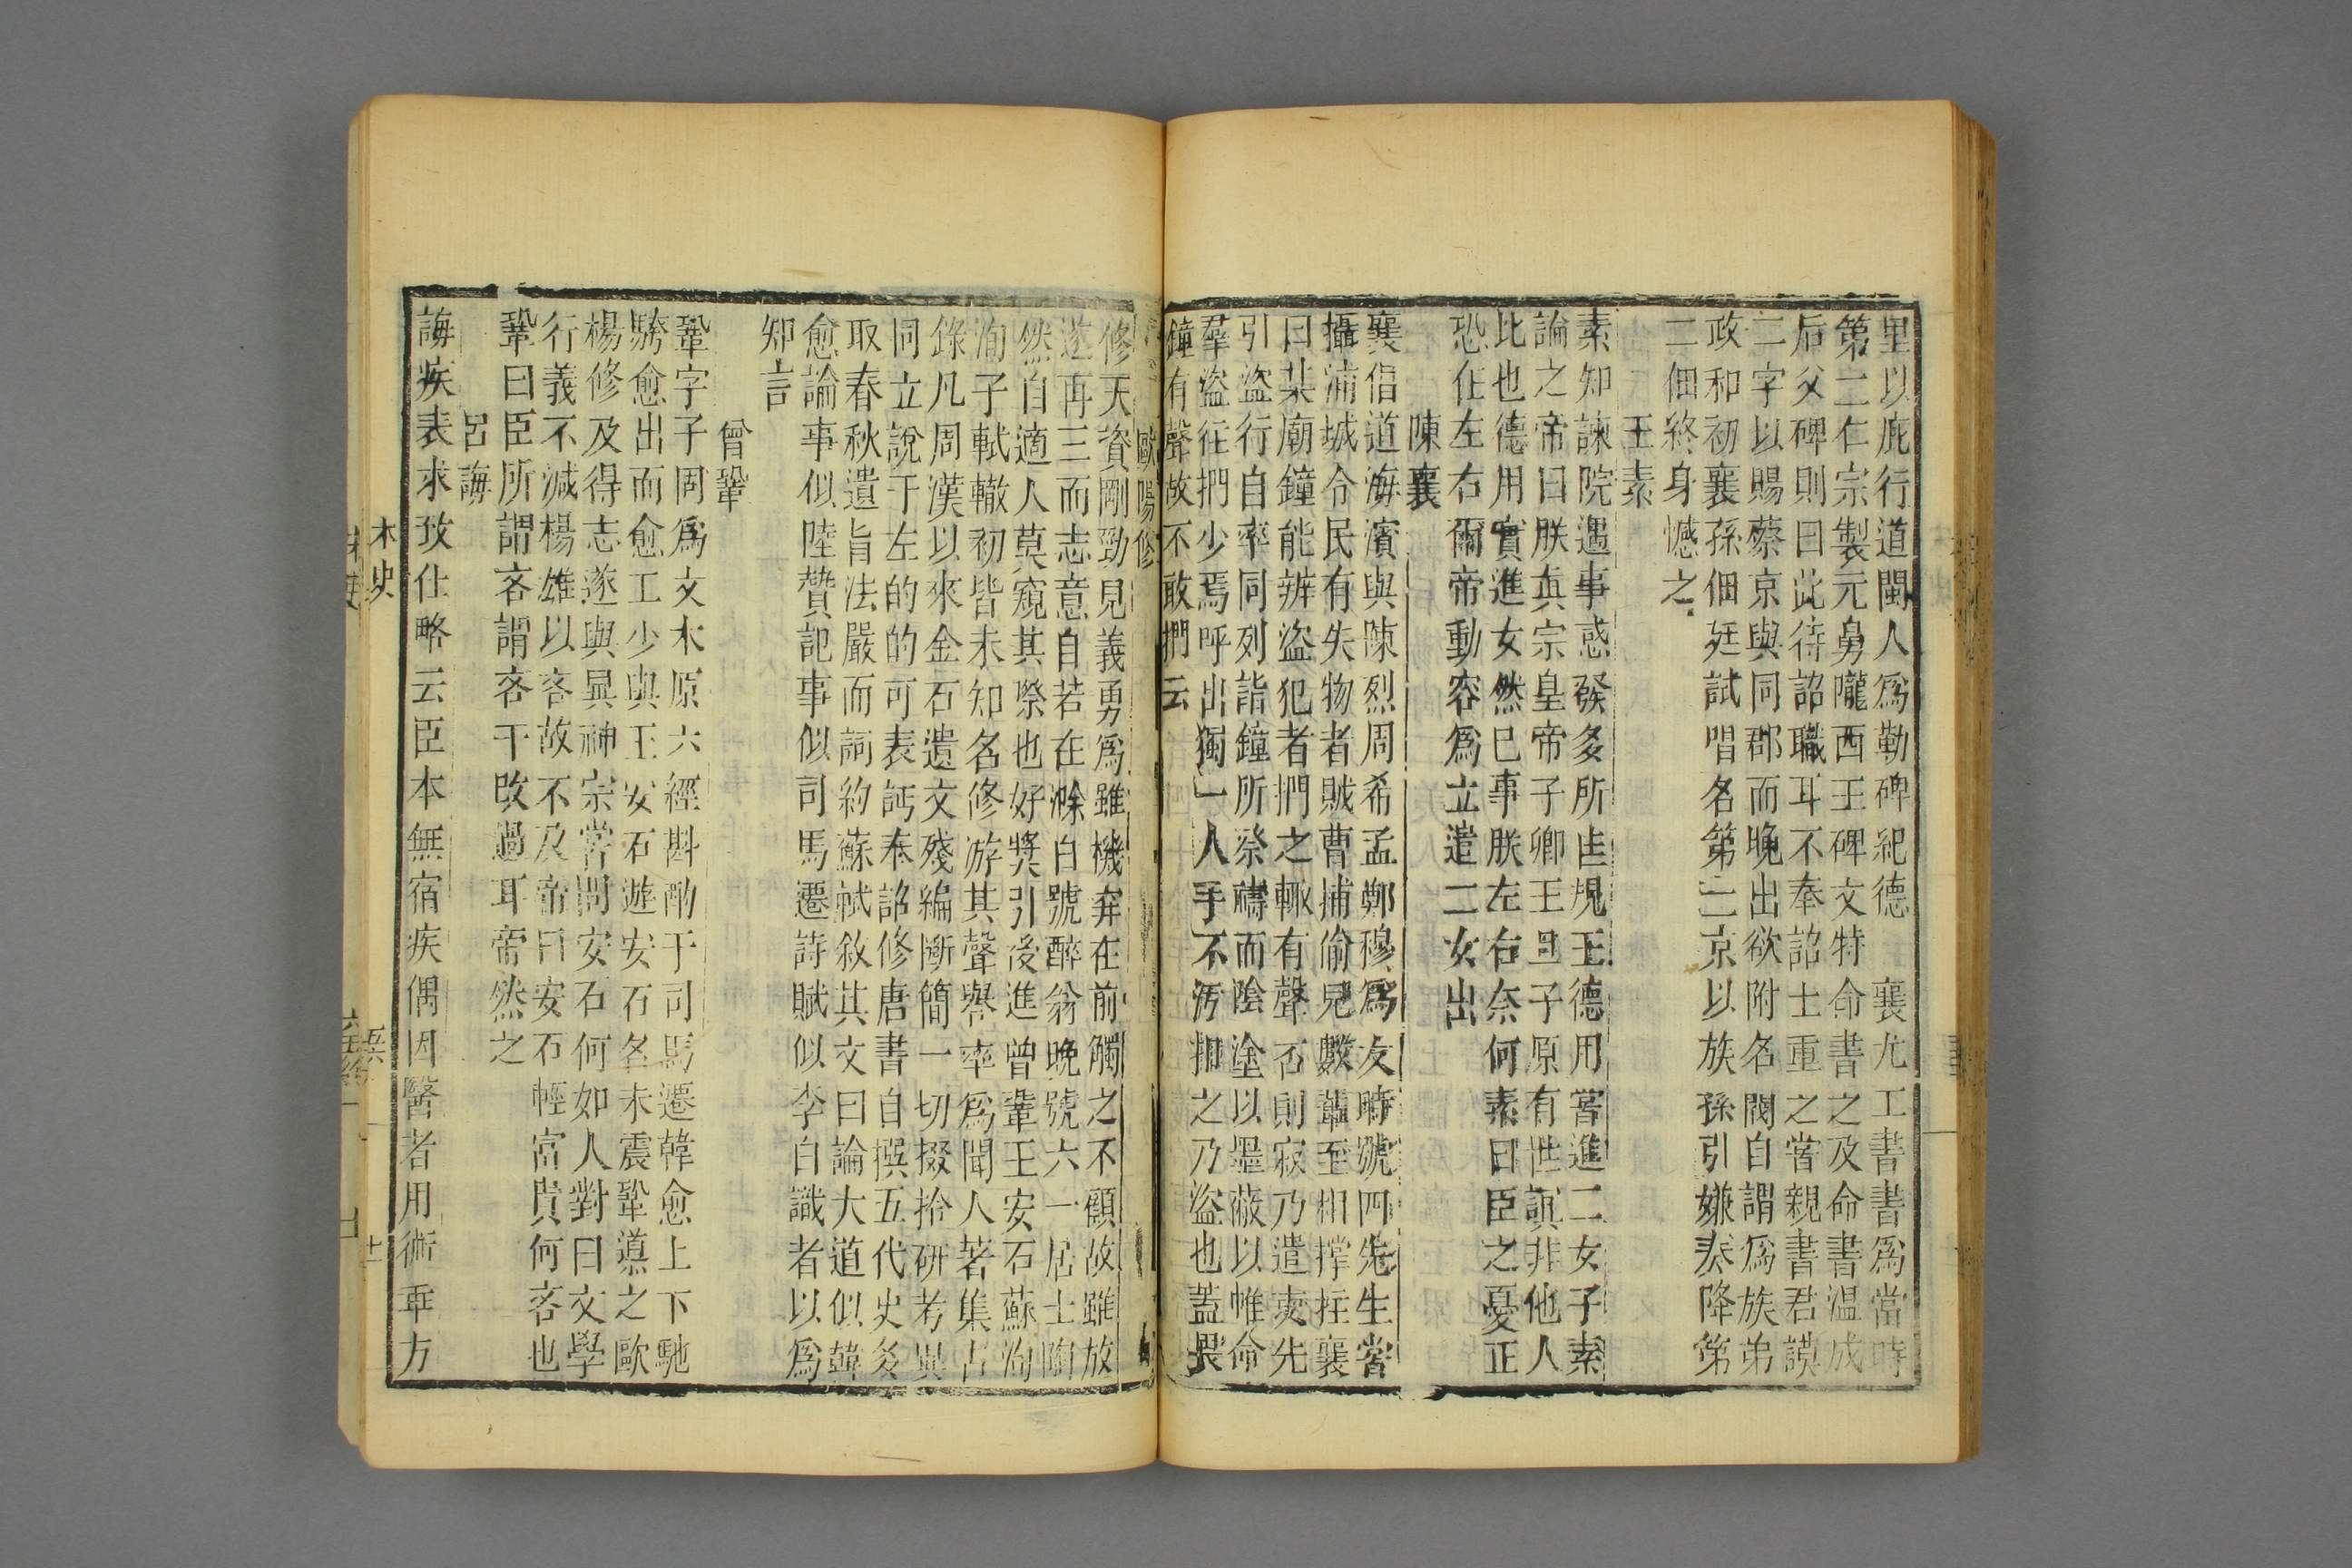 里以庇行道閩人爲勒碑紀德　襄尤工書書爲當時
第一仁宗製元舅隴西王碑文特命書之及命書温成
后父碑則曰此待詔職耳不奉詔士重之甞親書君謨
二字以賜蔡京與同郡而晚出欲附名閥自謂爲族弟
政和初襄孫佃廷試唱名第一京以族孫引嫌奏降第
二佃終身憾之
王素
素知諫院遇事感發多所匡規王德用甞進二女子素
論之帝曰朕真宗皇帝子卿王旦子原有世誼非他人
比也德用實進女然已事朕左右奈何素曰臣之憂正
恐在左右爾帝動容爲立遣二女出
陳襄
襄倡道海濱與陳烈周希孟鄭穆爲友時號四先生甞
攝浦城令民有失物者賊曹捕偷兒數輩至相撑拄襄
曰某廟鐘能辨盜犯者捫之輒有聲否則寂乃遣吏先
引盜行自率同列詣鐘所祭禱而陰塗以墨蔽以帷命
羣盜往捫少焉呼出獨一人手不汚扣之乃盜也蓋畏
鐘有聲故不敢捫云
歐陽修
修天資剛勁見義勇爲雖機穽在前觸之不顧故雖放
逐再三而志意自若在滁自號醉翁晚號六一居士陶
然自適人莫窺其際也好奬引後進曾鞏王安石蘇洵
洵子軾轍初皆未知名修游其聲譽率爲聞人著集古
錄凡周漢以來金石遺文殘編斷簡一切掇拾研考異
同立說于左的的可表訶奉詔修唐書自撰五代史多
取春秋遺旨法嚴而詞約蘇軾敘其文曰論大道似韓
愈論事似陸贄記事似司馬遷詩賦似李白識者以爲
知言
曾鞏
鞏字子固爲文本原六經斟酌于司馬遷韓愈上下馳
騁愈出而愈工少與王安石遊安石名未震鞏導之歐
楊修及得志遂與異神宗甞問安石何如人對曰文學
行義不減楊雄以吝故不及帝曰安石輕富貴何吝也
鞏曰臣所謂吝謂吝于改過耳帝然之
呂誨
誨疾表求致仕略云臣本無宿疾偶因醫者用術乖方
木史